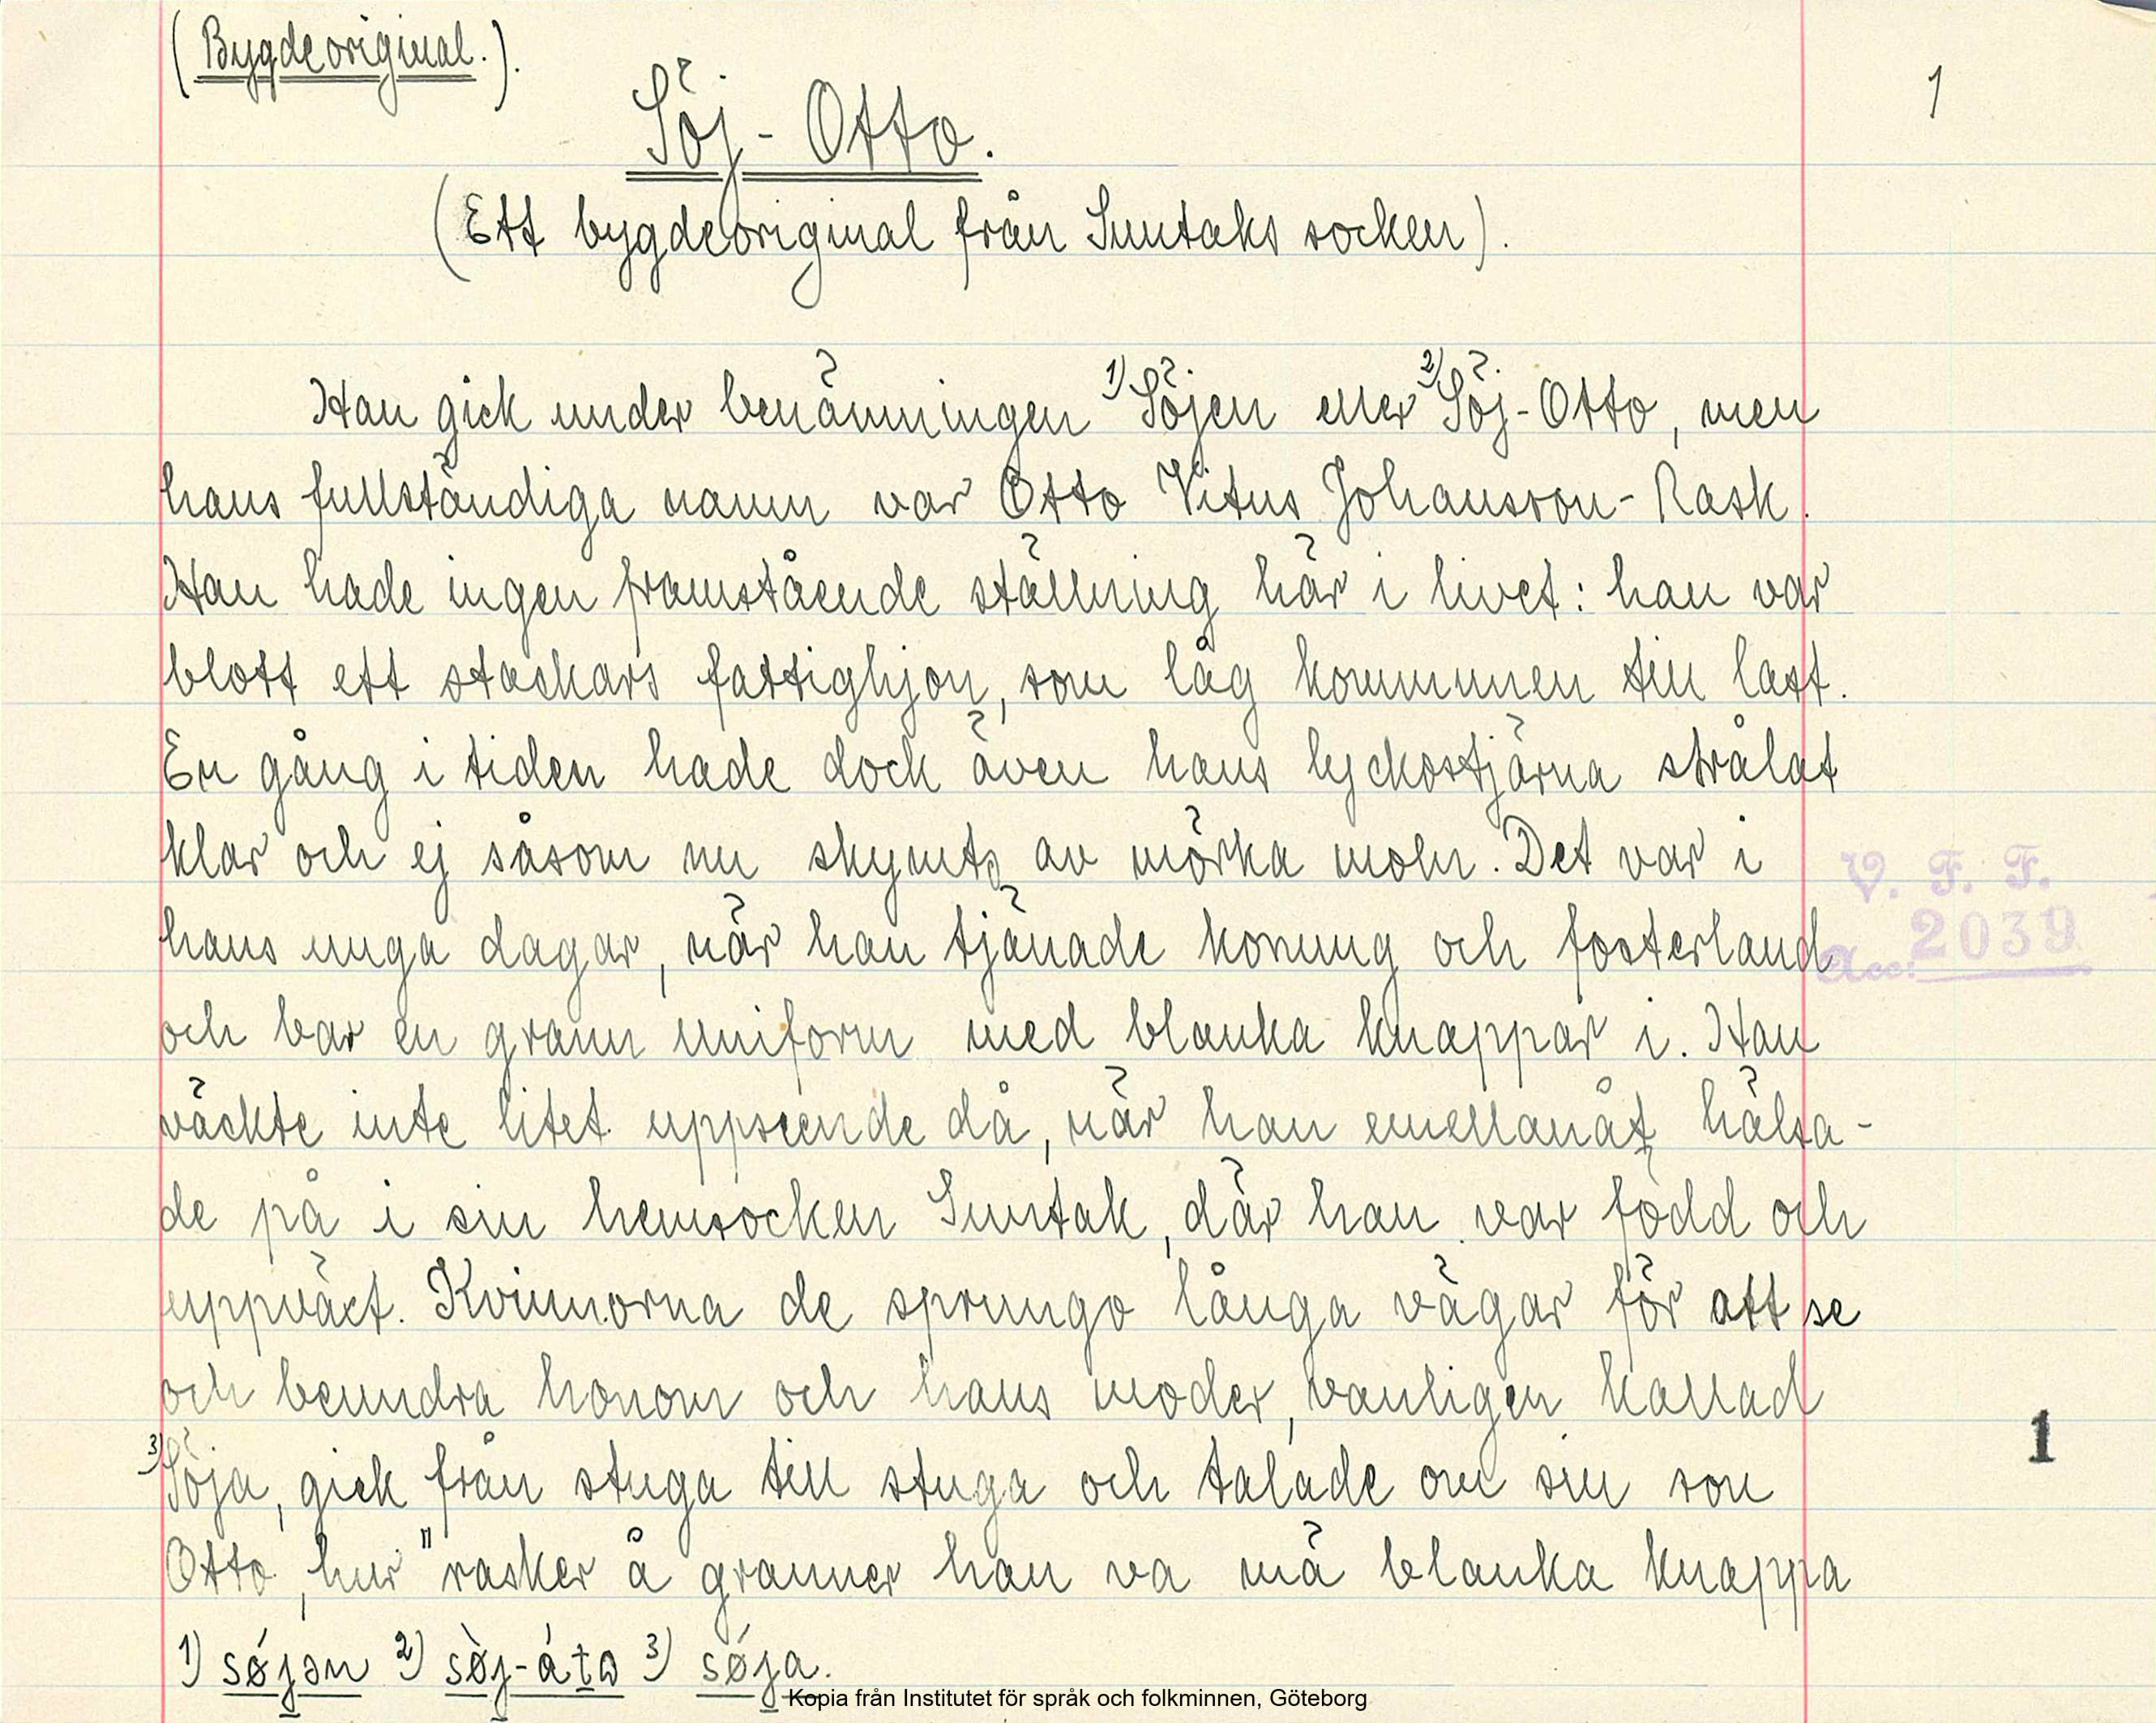 (Bygdeoriginal.).
1
Söj-Otto.
(Ett bygdeoriginal från Suntaks socken).
Han gick under benämningen 1) Söjen eller 2) Söj-Otto, men
hans fullständiga namn var Otto Vitus Johansson-Rask.
Han hade ingen framstående ställning här i livet: han var
blott ett stackars fattighjon, som låg kommunen till last.
En gång i tiden hade dock även hans lyckostjärna strålat
klar och ej såsom nu skymts av mörka moln. Det var i
hans unga dagar, när han tjänade konung och fosterland
och bar en grann uniform med blanka knappar i. Han
väckte inte litet uppseende då, när han emellanåt hälsa-
de på i sin hemsocken Suntak, där han var född och
uppväxt. Kvinnorna de sprungo långa vägar för att se
och beundra honom och hans moder, vanligen kallad
3) Söja, gick från stuga till stuga och talade om sin son
Otto, hur "rasker å granner han va mä blanka knappa
V. F. F.
Acc: 2039
1
1) søjən 2) sø̀j-áta 3) søja.
Kopia från Institutet för språk och folkminnen, Göteborg